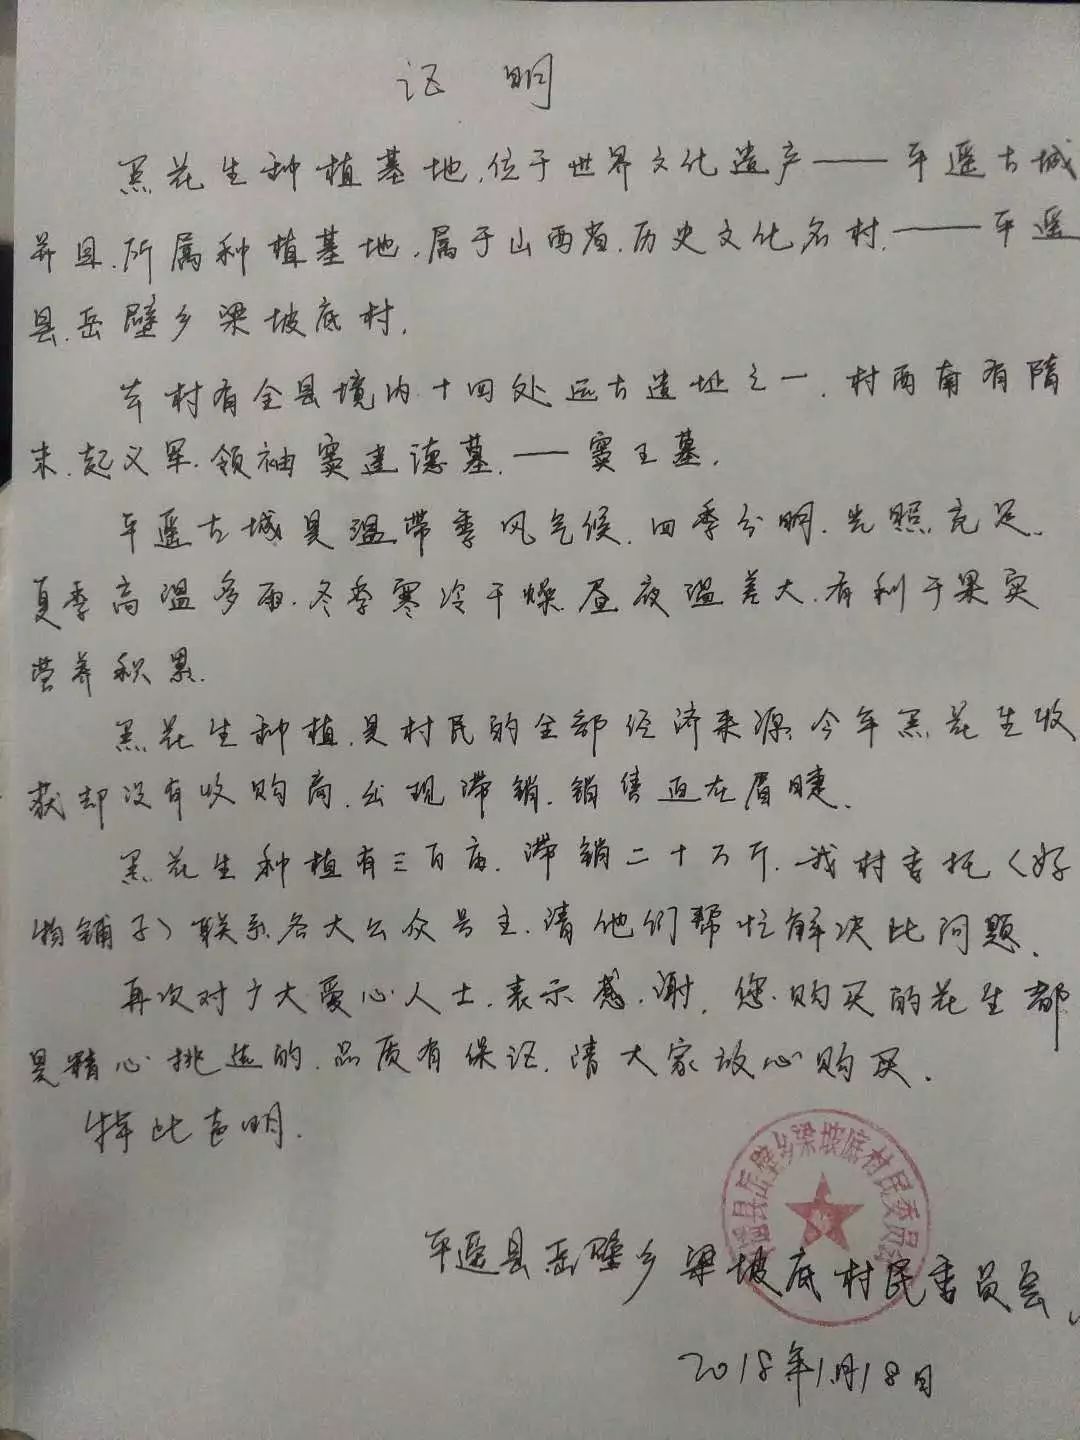 证明
黑花生种植基地.位于世界文化遗产——平遥古城
并且.所属种植基地.属于山西省.历史文化名村.——平遥
县.岳壁乡梁坡底村.
本村有全县境内十四处远古遗址之一.村西南有隋
末.起义军.领袖窦建德墓.——窦王墓.
平遥古城是温带季风气候.四季分明.光照充足.
夏季高温多雨.冬季寒冷干燥.昼夜温差大.有利于果实
营养积累.
黑花生种植.是村民的全部经济来源.今年黑花生收
获却没有收购商.出现滞销.销售迫在眉睫.
黑花生种植有三百亩.滞销二十万斤.我村委托〈好
物铺子〉联系各大公众号主.请他们帮忙解决此问题.
再次对广大爱心人士.表示感.谢.您.购买的花生都
是精心挑选的.品质有保证.请大家放心购买.
特此声明.
遥县岳壁乡梁坡底村民委员会
平遥县岳壁乡梁坡底村民委员会.
2018年1月18日